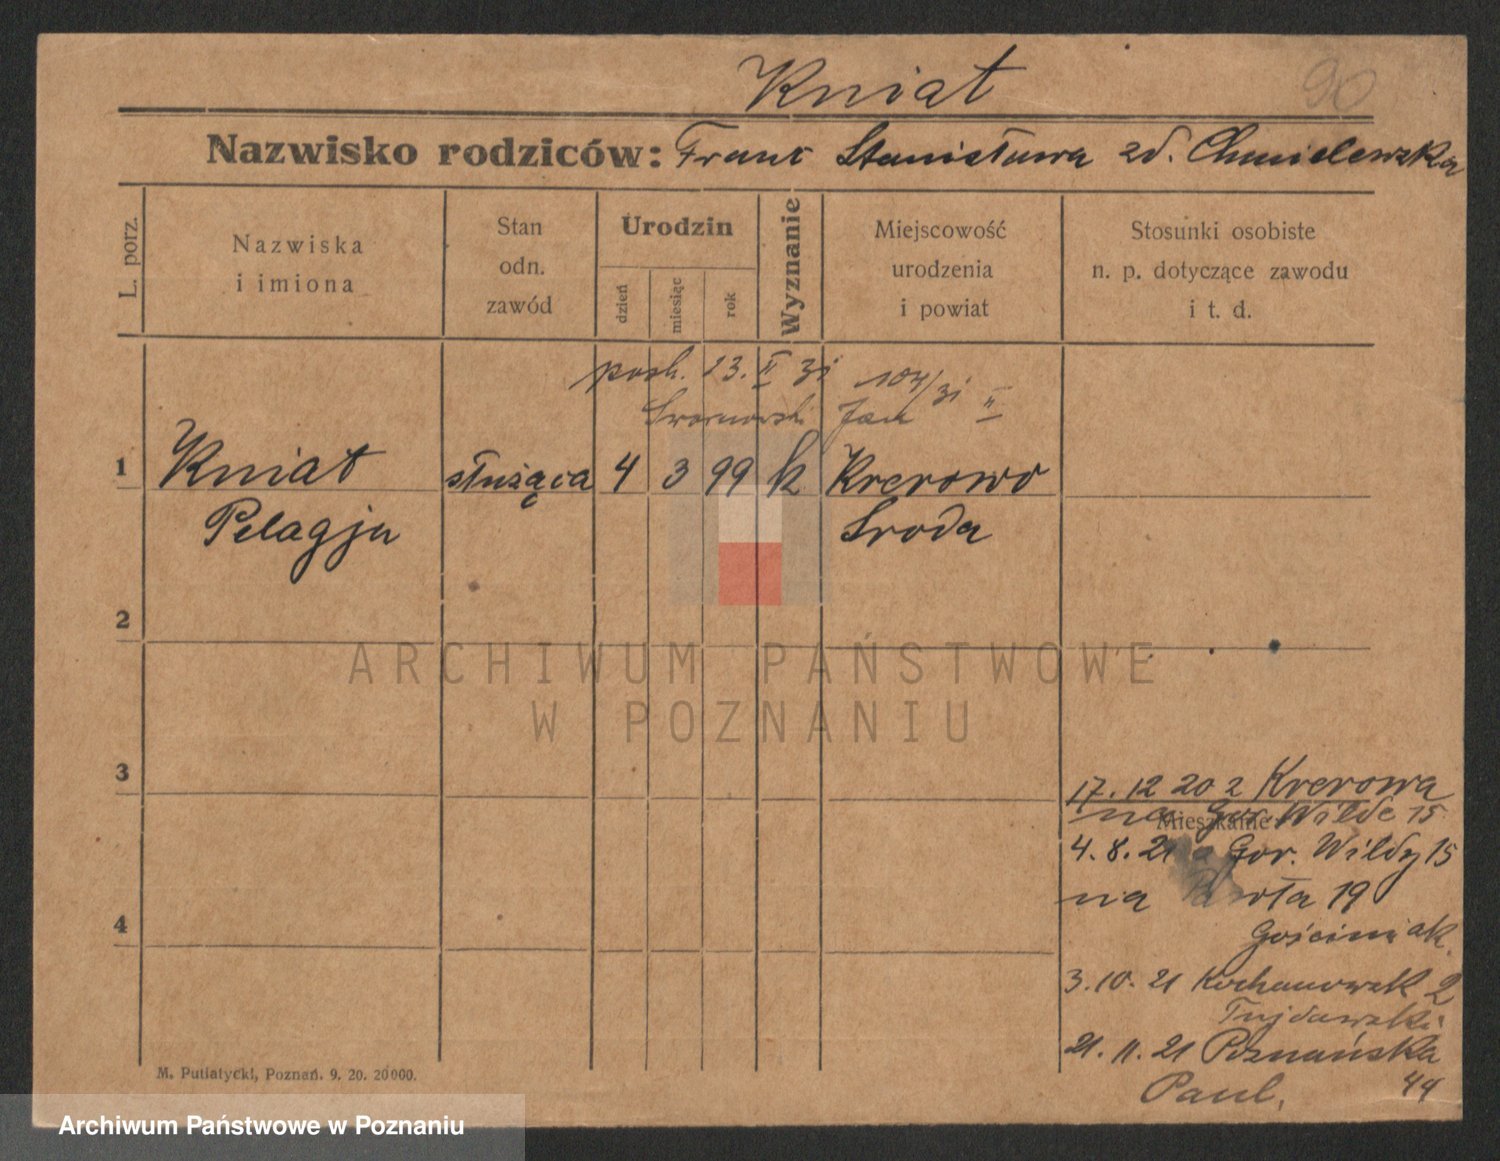 Kniat
90
Nazwisko rodziców: Franc Stanisława zd. Chmielewska
L. porz.
Nazwiska
i imiona
Stan
odn.
zawód
Urodzin
dzień
miesiąc
rok
Wyznanie
Miejscowość
urodzenia
i powiat
Stosunki osobiste
n. p. dotyczące zawodu
i t. d.
posl. 13. II 31 104/31 II
Swornowski Jan
1 Kniat służąca 4 3 99 k Krerowo
Pelagja Sroda
2
ARCHIWUM PAŃSTWOWE
W POZNANIU
3
17. 12 20 z Krerowa
na Gor. Wilde 15
Mieszkanie
4. 8. 21 Gor. Wildy 15
na 19
4
Gościniak
3. 10. 21 Kochanowsk 2
Tujdawski
21. 11. 21 Poznańska
Paul. 44
M. Putiatycki, Poznań. 9. 20. 20000.
Archiwum Państwowe w Poznaniu